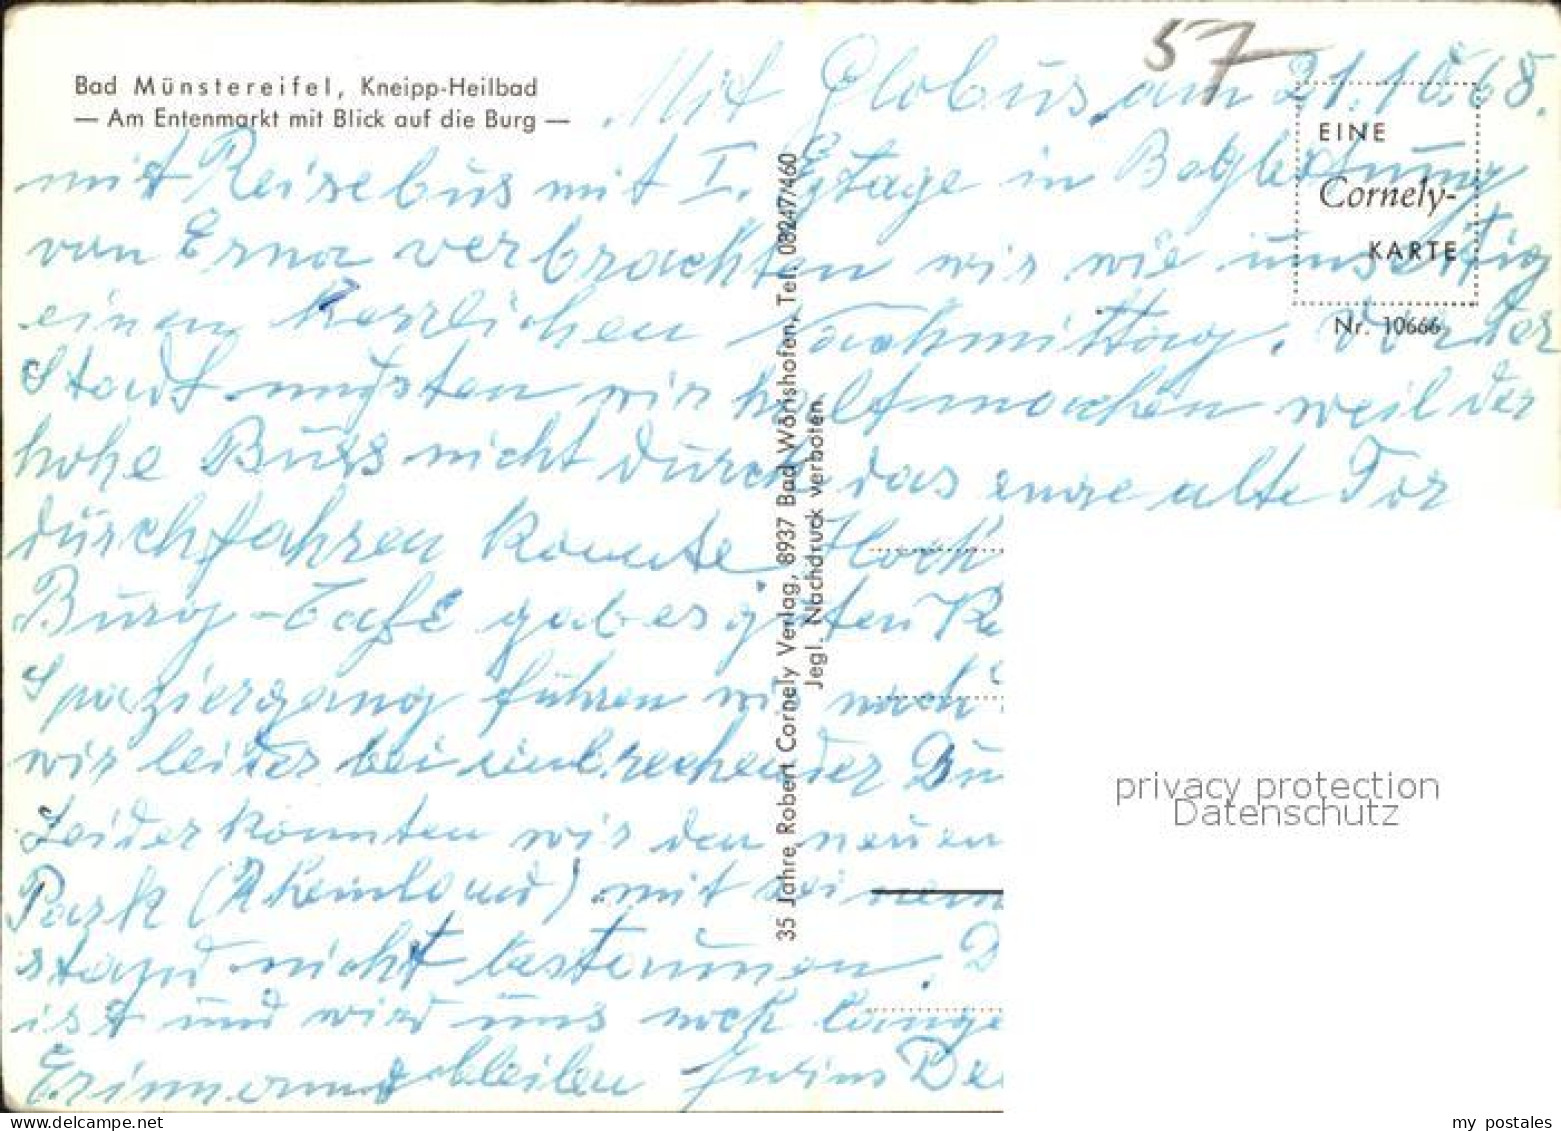 57
Bad Münstereifel, Kneipp-Heilbad
— Am Entenmarkt mit Blick auf die Burg —
Mit Globus am 21.10.68.
mit Reisebus mit I. Etage in
von Erna verbrachten wir wie
einen herrlichen Nachmittag. Vor der
Stadt mußten wir halt machen weil der
hohe Buss nicht durch das enge alte Tor
durchfahren konnte. Hoch
Burg-Café gab es guten
Spaziergang führen wir noch
wir leider bei einbrechender
Leider konnten wir den neuen
Park (Rheinland) mit seinem
stand nicht bestaunen. D
ist und wird uns noch lange
Erinnerung bleiben
EINE
Cornely-
KARTE
Nr. 10666
35 Jahre Robert Cornely Verlag, 8937 Bad Wörishofen, Tel. 08247/460
Jegl. Nachdruck verboten
privacy protection
Datenschutz
my postales